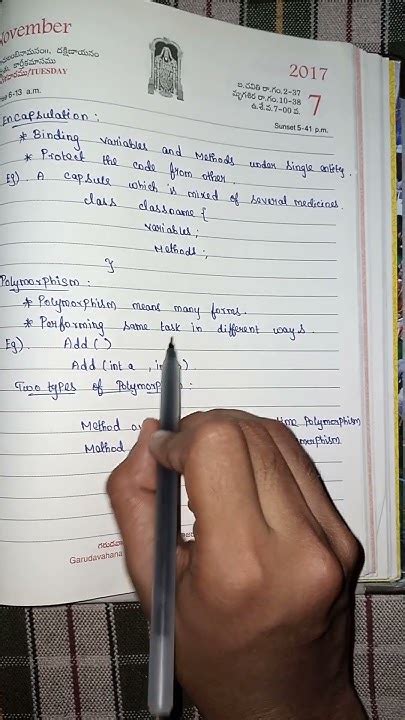 November
2017
దక్షిణాయనం
కార్తీకమాసము
/TUESDAY
7
6-13 a.m.
Sunset 5-41 p.m.
Encapsulation :
* Binding variables and Methods under single entity.
* Protect the code from other.
Eg). A capsule which is mixed of several medicines.
class classname {
variables;
Methods;
}
Polymorphism :
* Polymorphism means many forms.
* Performing same task in different ways.
Eg). Add ( )
Add (int a , in
Two types of Polymorp :
Method time Polymorphism
Method morphism
Garudavahana